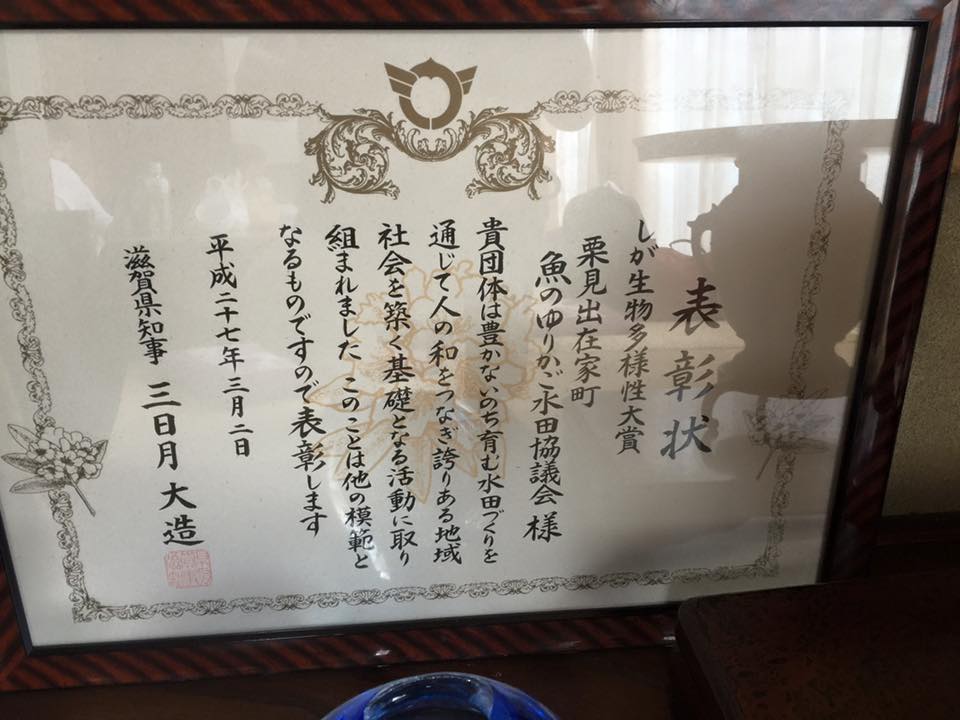 表彰状
しが生物多様性大賞
栗見出在家町
魚のゆりかご水田協議会 様
貴団体は豊かないのち育む水田づくりを
通じて人の和をつなぎ誇りある地域
社会を築く基礎となる活動に取り
組まれました このことは他の模範と
なるものですので表彰します
平成二十七年三月二日
滋賀県知事 三日月 大造